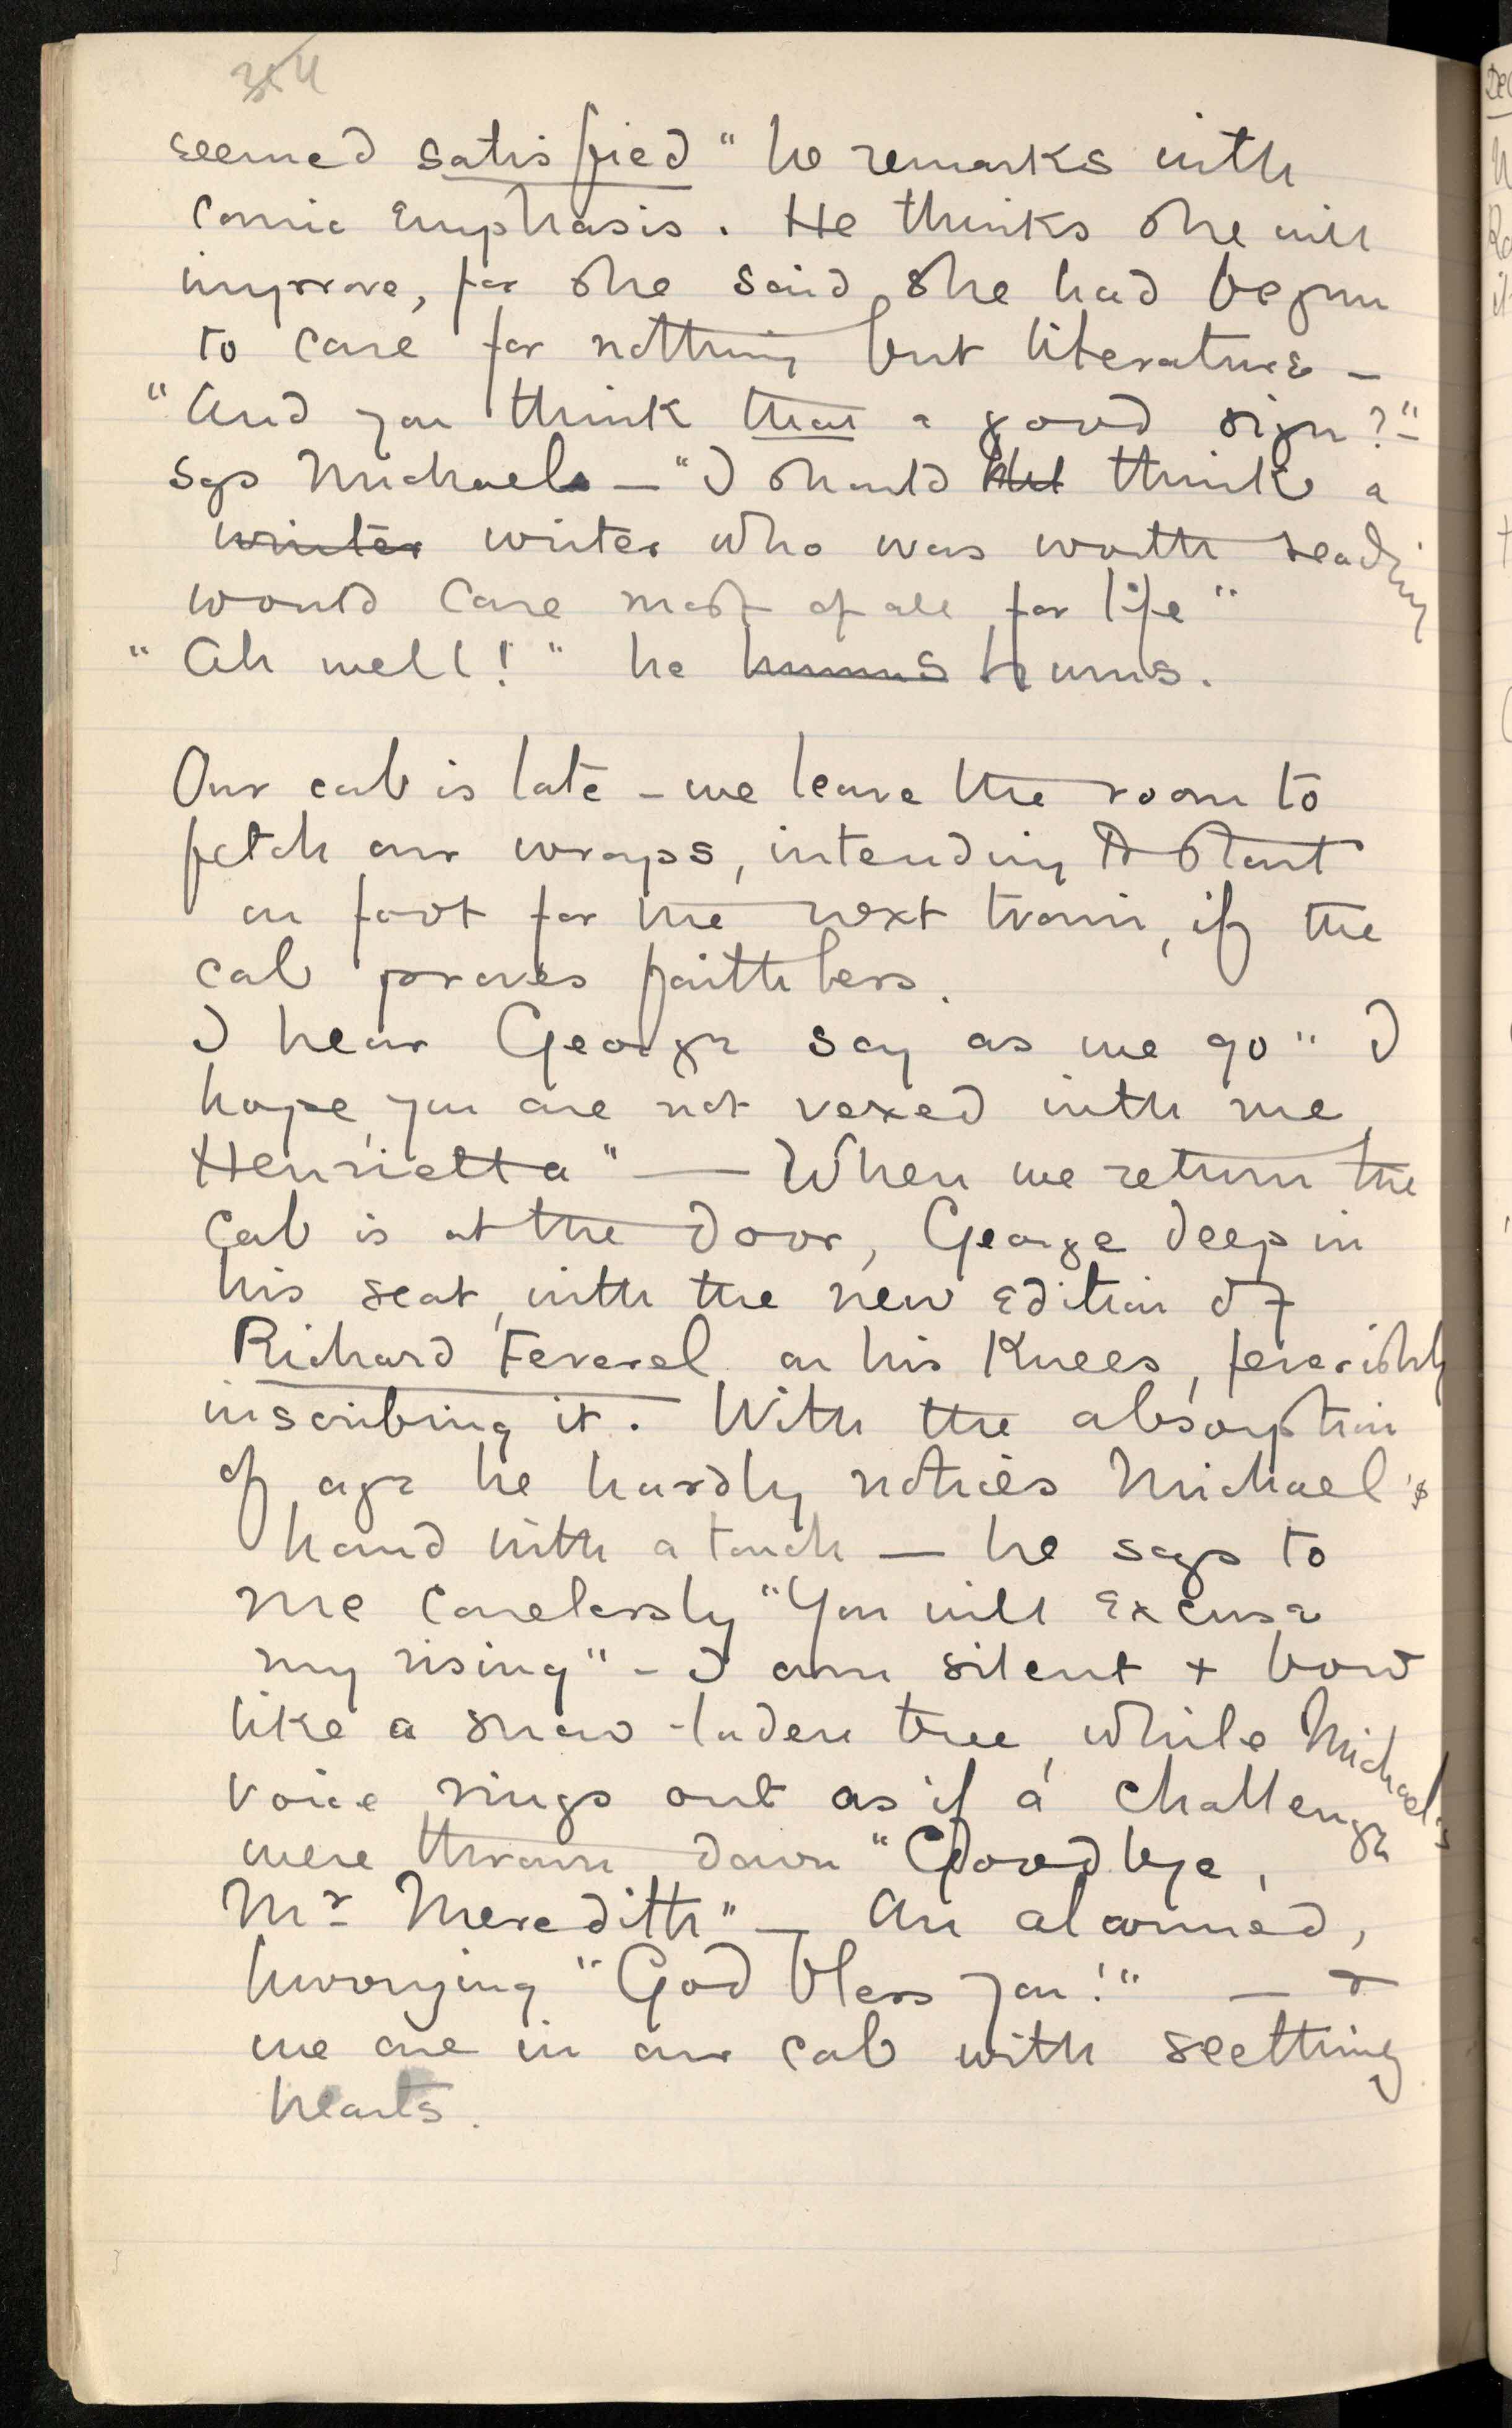 seemed satisfied" he remarks with
comic emphasis. He thinks she will
improve, for she said she had begun
to care for nothing but literature —
"And you think that a good sign?" –
says Michael — "I should think a
winter writer who was worth reading
would care most of all for life"
"Ah well!" he hums hums.
Our cab is late – we leave the room to
fetch our wraps, intending to start
on foot for the next train, if the
cab proves faithless.
I hear George say as we go "I
hope you are not vexed with me
Henrietta" — When we return the
cab is at the door, George deep in
his seat, with the new edition of
Richard Feverel on his knees, feverishly
inscribing it. With the absorption
of age he hardly notices Michael's
hand with a touch — he says to
me carelessly "You will excuse
my rising" – I am silent + bow
like a snow-laden tree, while Michael's
voice rings out as if a challenge
were thrown down "Goodbye,
Mr Meredith" — An alarmed,
hurrying "God bless you!" — &
we are in our cab with seething
hearts.